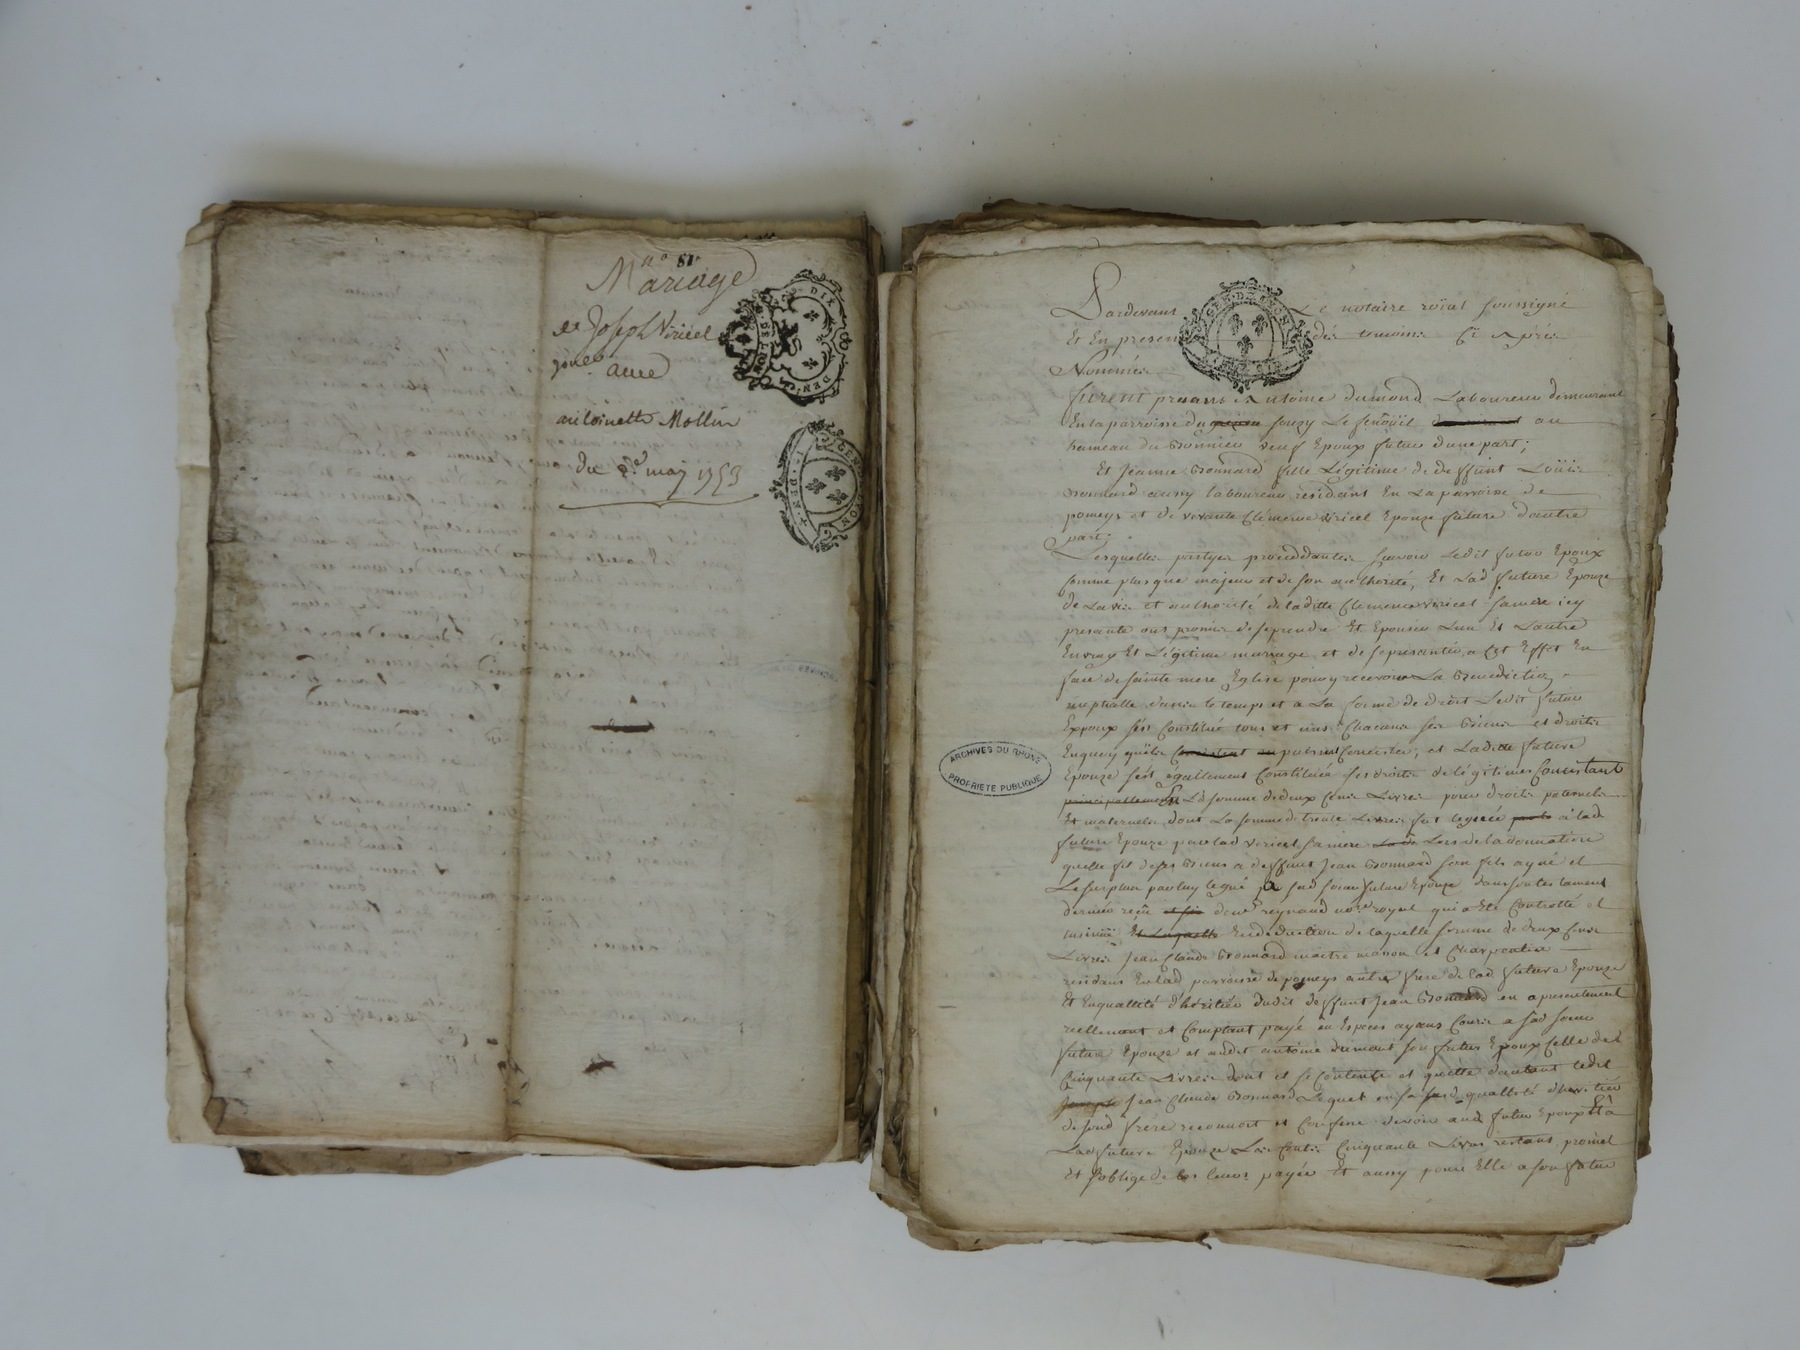 n° 81
Mariage
de Joseph Viricel
avec
antoinette Mollin
du 2e may 1753
GEN DE LYON
DIX DEN
ARCHIVES DU RHONE
PROPRIETE PUBLIQUE
Pardevant Le notaire roial soussigné
Et En presence des temoins Cy Aprés
Nommés
furent presans Antoine dumond Laboureur demeurant
En la parroisse du souzy Le fenoüil au
hameau du Bonnier veuf Epoux futur d'une part;
Et Jeanne Bonnard fille Légitime de deffunt Loüis
Bonnard aussy laboureur residant En La parroisse de
pomeys et de vivante Clémence viricel Epouze future d'autre
part;
Lesquelles partyes procédantes scavoir Ledit futur Epoux
comme plus que majeur et de son authorité, Et Lad future Epouze
de L'avis et authorité de laditte Clemence viricel sa mere icy
presante ont promis de se prendre Et Epouser L'un Et L'autre
En vray Et Légitime mariage et de se presanter a Cet Effet En
face de sainte mere Eglise pour y recevoir La Benediction
nuptialle dans le temps et a La forme de droit Ledit futur
Expoux s'est Constitué tous et uns Chacuns ses Biens et droits
Enquoy quils puissent Concister; et Laditte future
Epouze s'est égallement Constituée ses droits de légitimes Concistant
En La somme de deux Cent Livres pour droits paternels
Et maternels dont La somme de trente Livres fut leguée à lad
future Epouze par lad viricel sa mere Lors de la donnation
quelle fit de ses Biens a deffunt Jean Bonnard son fils ayné et
Le surplus par luy legué a sad soeur future Epouze dans son testament
dernier reçu devt reynaud nore royal qui a Eté Controllé et
insinüé En deduction de laquelle somme de deux Cent
Livres Jean Claude Bonnard maitre masson et Charpentier
residant En lad parroisse de pomeys autre frere de lad future Epouze
Et En quallité d'héritier dudit deffunt Jean Bonnard en a presentement
reellement et Comptant payé en Especes ayans Cours a sad soeur
future Epouze et audit antoine dumont son futur Epoux Celle de
Cinquante Livres dont il se Contente et quitte d'autant ledit
Jean Claude Bonnard Lequel en sa quallité d'heritier
de sond frere reconnoit et Confesse devoir aud futur Epoux Et à
Lad future Epouze Les Cent Cinquante Livres restant promet
Et s'oblige de les leurs payer Et aussy pour Elle a son futur